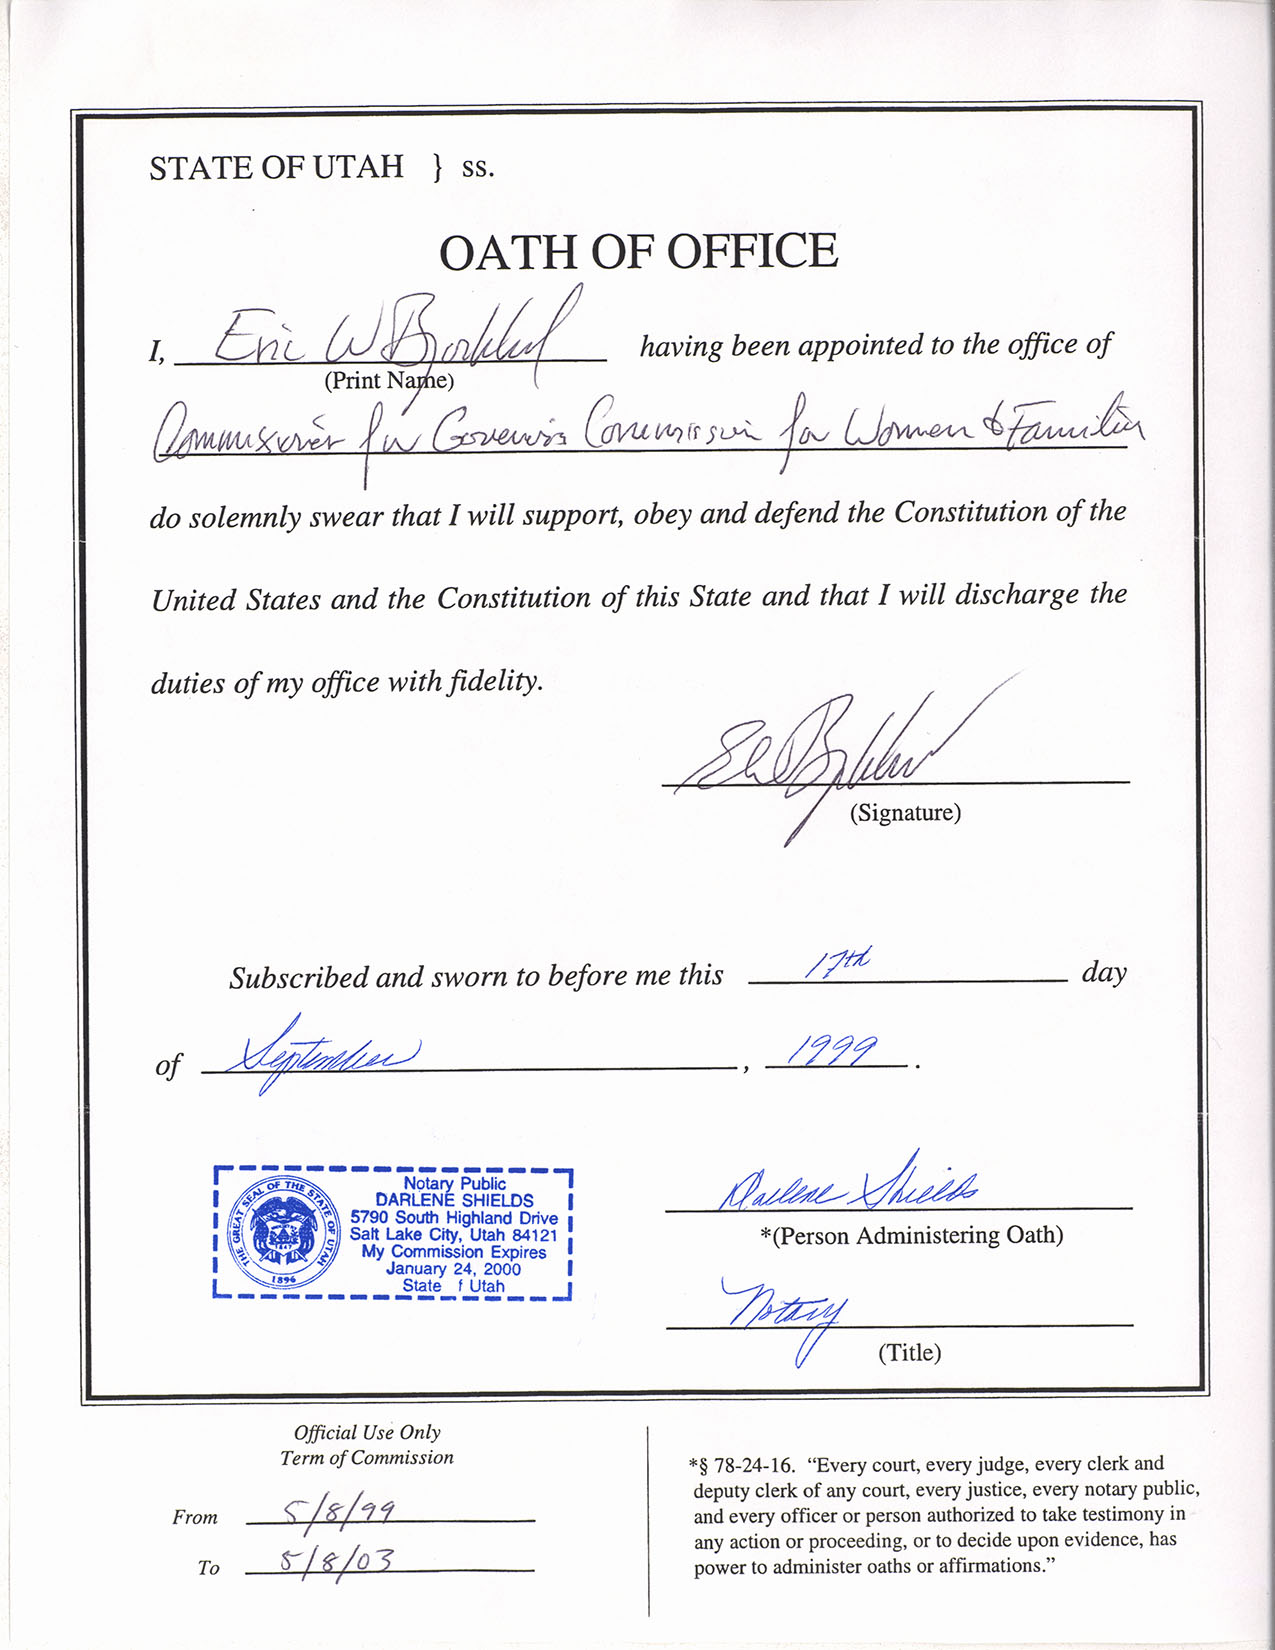 STATE OF UTAH } ss.
OATH OF OFFICE
I, Eric W Bjorklund having been appointed to the office of
(Print Name)
Commissioner for Governor's Commission for Women & Families
do solemnly swear that I will support, obey and defend the Constitution of the
United States and the Constitution of this State and that I will discharge the
duties of my office with fidelity.
(Signature)
Subscribed and sworn to before me this 17th day
of September, 1999.
THE GREAT SEAL OF THE STATE OF UTAH
1847
1896
Notary Public
DARLENE SHIELDS
5790 South Highland Drive
Salt Lake City, Utah 84121
My Commission Expires
January 24, 2000
State f Utah
Darlene Shields
*(Person Administering Oath)
Notary
(Title)
Official Use Only
Term of Commission
From 5/8/99
To 5/8/03
*§ 78-24-16. “Every court, every judge, every clerk and
deputy clerk of any court, every justice, every notary public,
and every officer or person authorized to take testimony in
any action or proceeding, or to decide upon evidence, has
power to administer oaths or affirmations.”